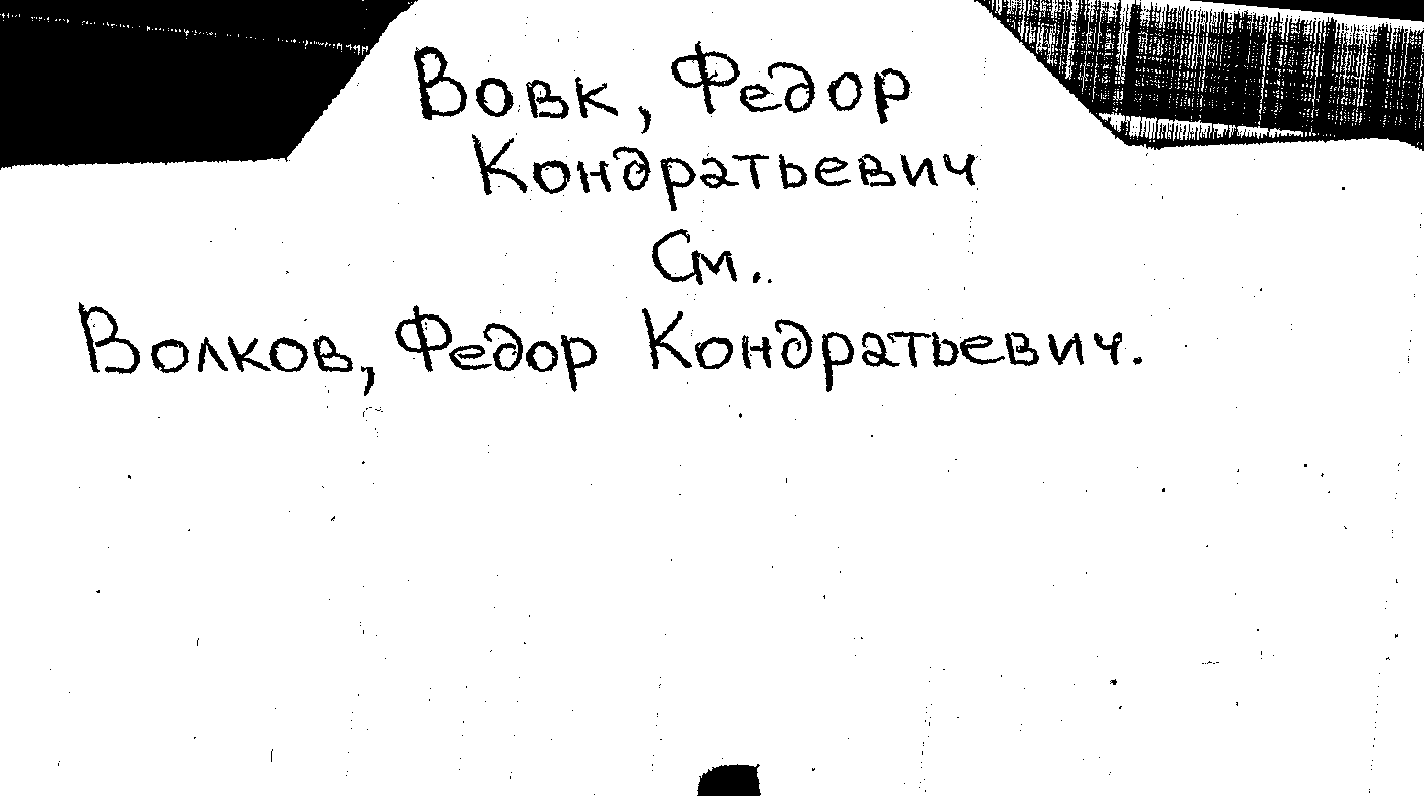 Вовк, Федор
Кондратьевич
См.
Волков, Федор Кондратьевич.